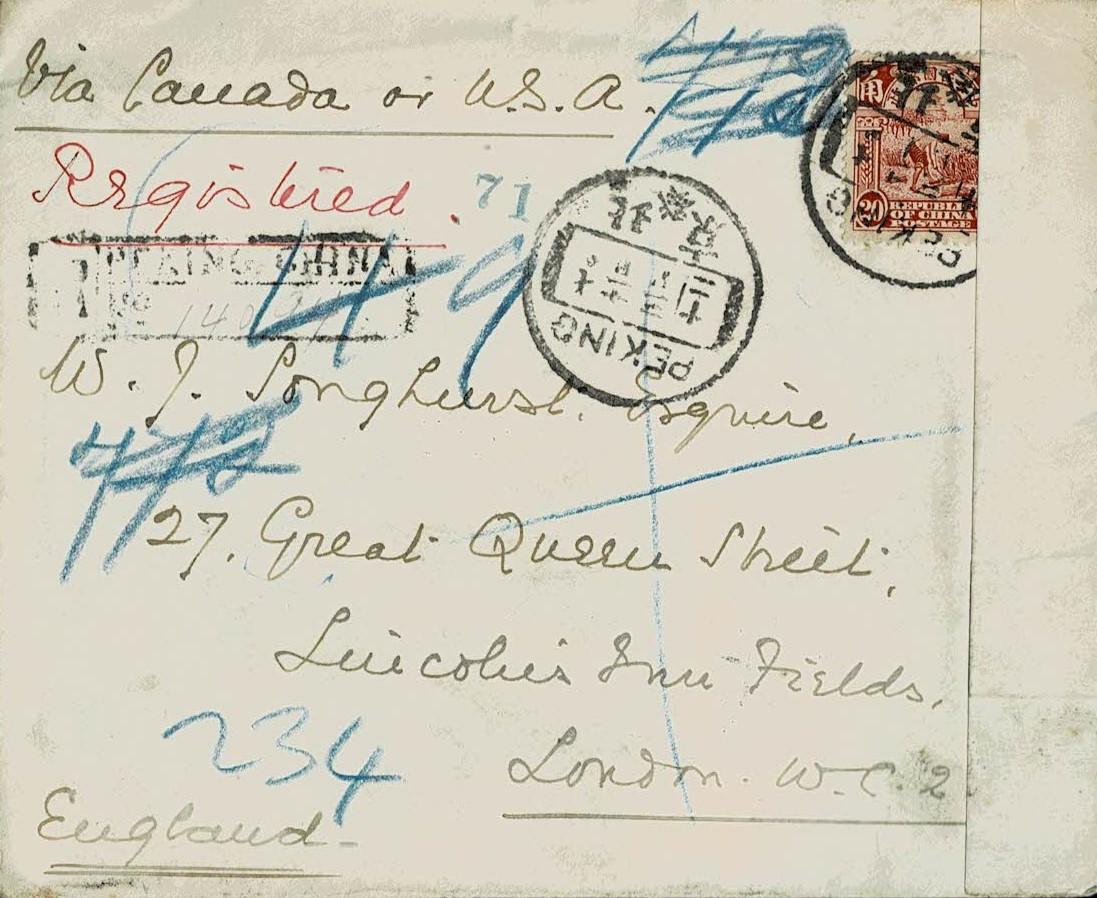 Via Canada or U.S.A.
Registered.
71
PEKING
北京
PEKING
20
REPUBLIC
OF CHINA
POSTAGE
PEKING, CHINA
No
W. J. Longhurst. Esquire,
27, Great Queen Street,
Lincoln's Inn Fields,
234
London. W.C.2.
England